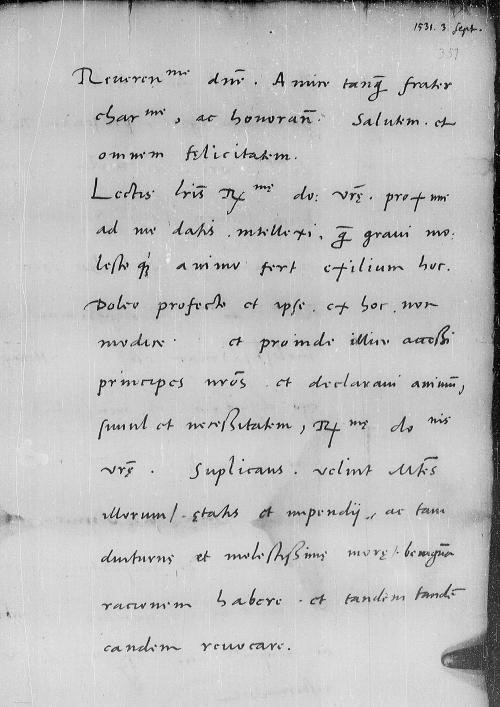 1531. 3. Sept.
351
Reveren^me dn̄e. Amice tanq̄ frater
char^me, ac honoran̄. Salutem. et
omnem fęlicitatem.
Lectis lr̄is R^mę do: vr̄ę. proxime
ad me datis intellexi, q̄ gravi mo:
lesteq́ꝫ animo fert exilium hoc.
Doleo profecto et ipse ex hoc non
modice et proinde illico acceßi
principes nr̄os et declaravi animū,
simul et neceßitatem, R^mę do^nis
vr̄ę. Suplicans. velint M̄tes
illorum/. ętatis et impendij, ac tam
diuturnę et molestißimę morę/. benignā
racionem habere. et tandem tandē
eandem revocare.